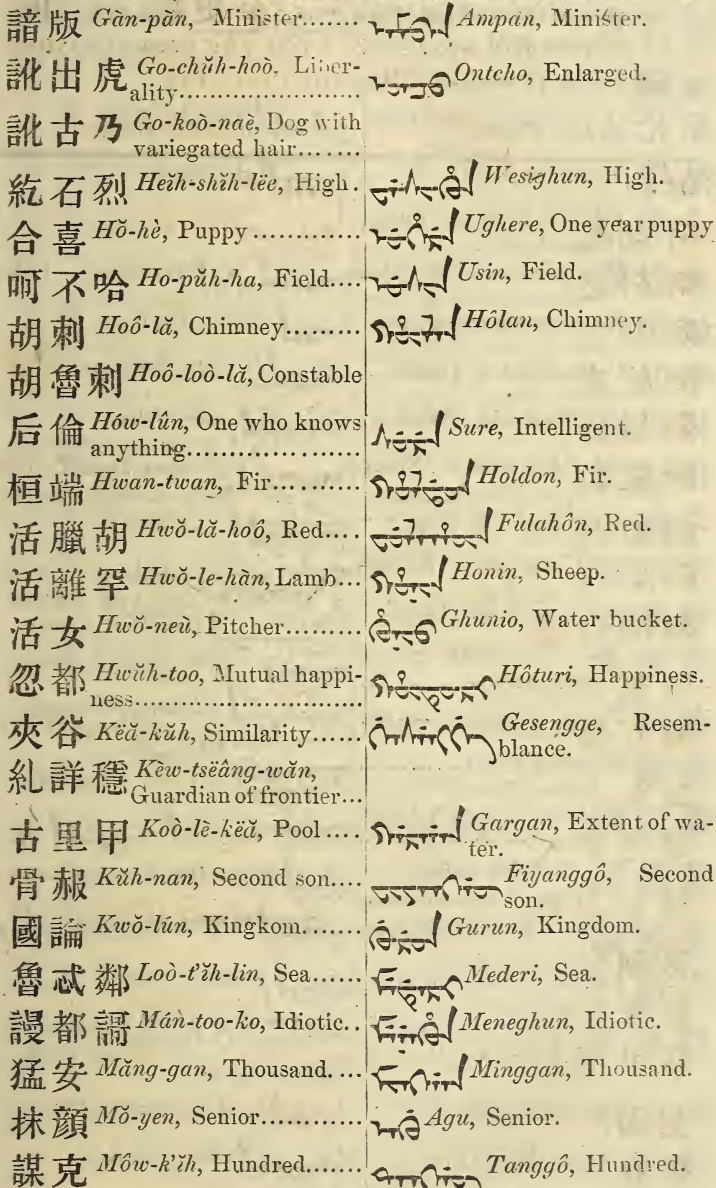 諳版 Gàn-pàn, Minister....... Ampan, Minister.
訛出虎 Go-chŭh-hoò, Liber-ality........................ Ontcho, Enlarged.
訛古乃 Go-koò-naè, Dog with
variegated hair.......
紇石烈 Heĭh-shĭh-lëe, High. Wesighun, High.
合喜 Hŏ-hè, Puppy ............. Ughere, One year puppy
呵不哈 Ho-pŭh-ha, Field.... Usin, Field.
胡刺 Hoô-lă, Chimney......... Hôlan, Chimney.
胡魯刺 Hoô-loò-lă, Constable
后倫 Hów-lûn, One who knows
anything.................... Sure, Intelligent.
桓端 Hwan-twan, Fir.......... Holdon, Fir.
活臘胡 Hwŏ-lă-hoô, Red.... Fulahôn, Red.
活離罕 Hwŏ-le-hàn, Lamb... Honin, Sheep.
活女 Hwŏ-neù, Pitcher......... Ghunio, Water bucket.
忽都 Hwŭh-too, Mutual happi-
ness............................. Hôturi, Happiness.
夾谷 Këă-kŭh, Similarity...... Gesengge, Resem-
blance.
糺詳穩 Kèw-tsëâng-wăn,
Guardian of frontier...
古里甲 Koò-lè-këă, Pool .... Gargan, Extent of wa-
ter.
骨赧 Kŭh-nan, Second son.... Fiyanggô, Second
son.
國論 Kwŏ-lún, Kingkom....... Gurun, Kingdom.
魯忒鄰 Loò-t'ĭh-lin, Sea...... Mederi, Sea.
謾都謌 Mán-too-ko, Idiotic.. Meneghun, Idiotic.
猛安 Măng-gan, Thousand. ... Minggan, Thousand.
抹顏 Mŏ-yen, Senior............ Agu, Senior.
謀克 Môw-k'ĭh, Hundred....... Tanggô, Hundred.